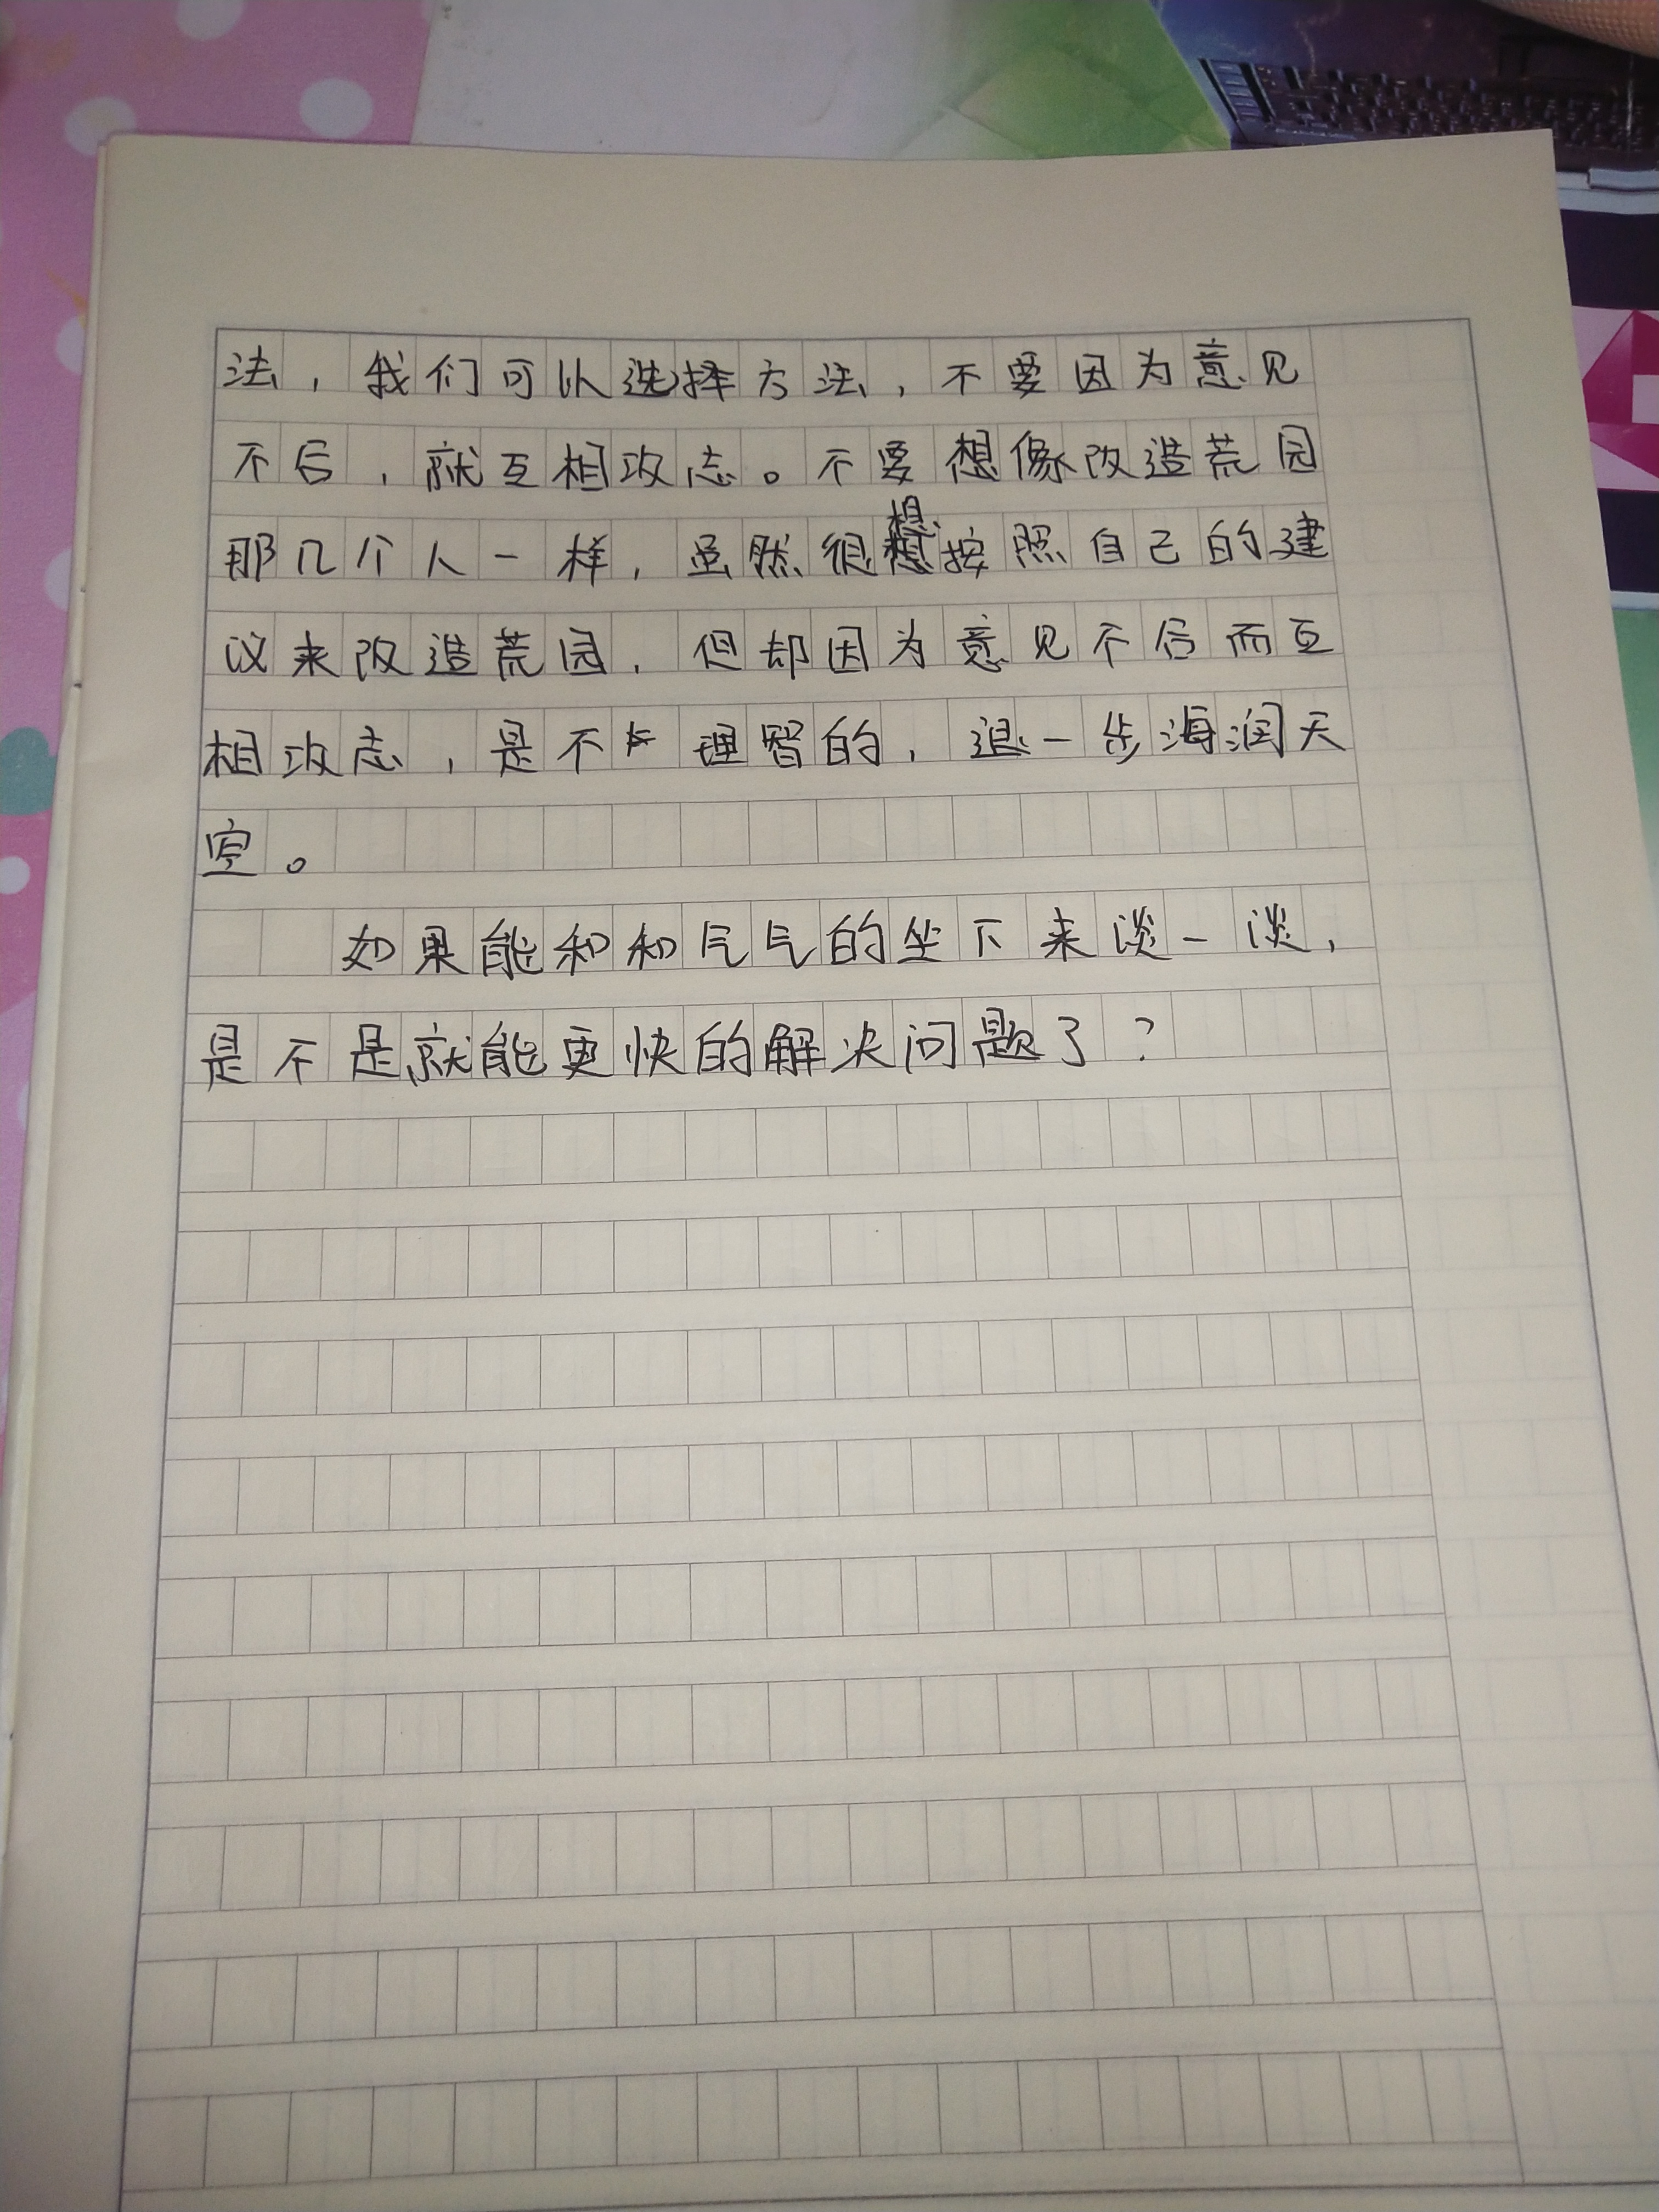 法，我们可以选择方法，不要因为意见
不后，就互相攻志。不要想像改造荒园
那几个人一样，虽然很想按照自己的建
议来改造荒园，但却因为意见不后而互
相攻志，是不理智的，退一步海润天
空。
如果能和和气气的坐下来淡一淡，
是不是就能更快的解决问题了？